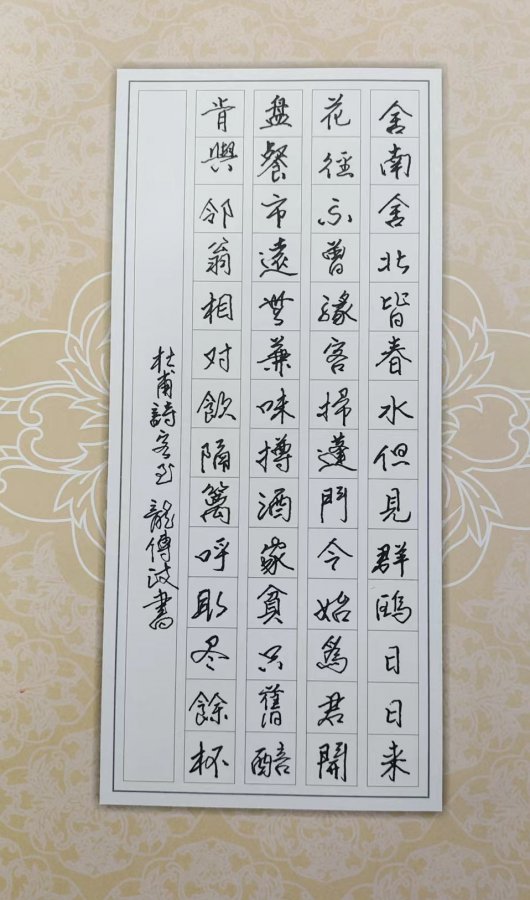 舍南舍北皆春水但見群鷗日日来
花徑不曾緣客掃蓬門今始為君開
盘餐市遠無兼味樽酒家貧只舊醅
肯與邻翁相对飲隔篱呼取尽餘杯
杜甫詩客至 龍傳書